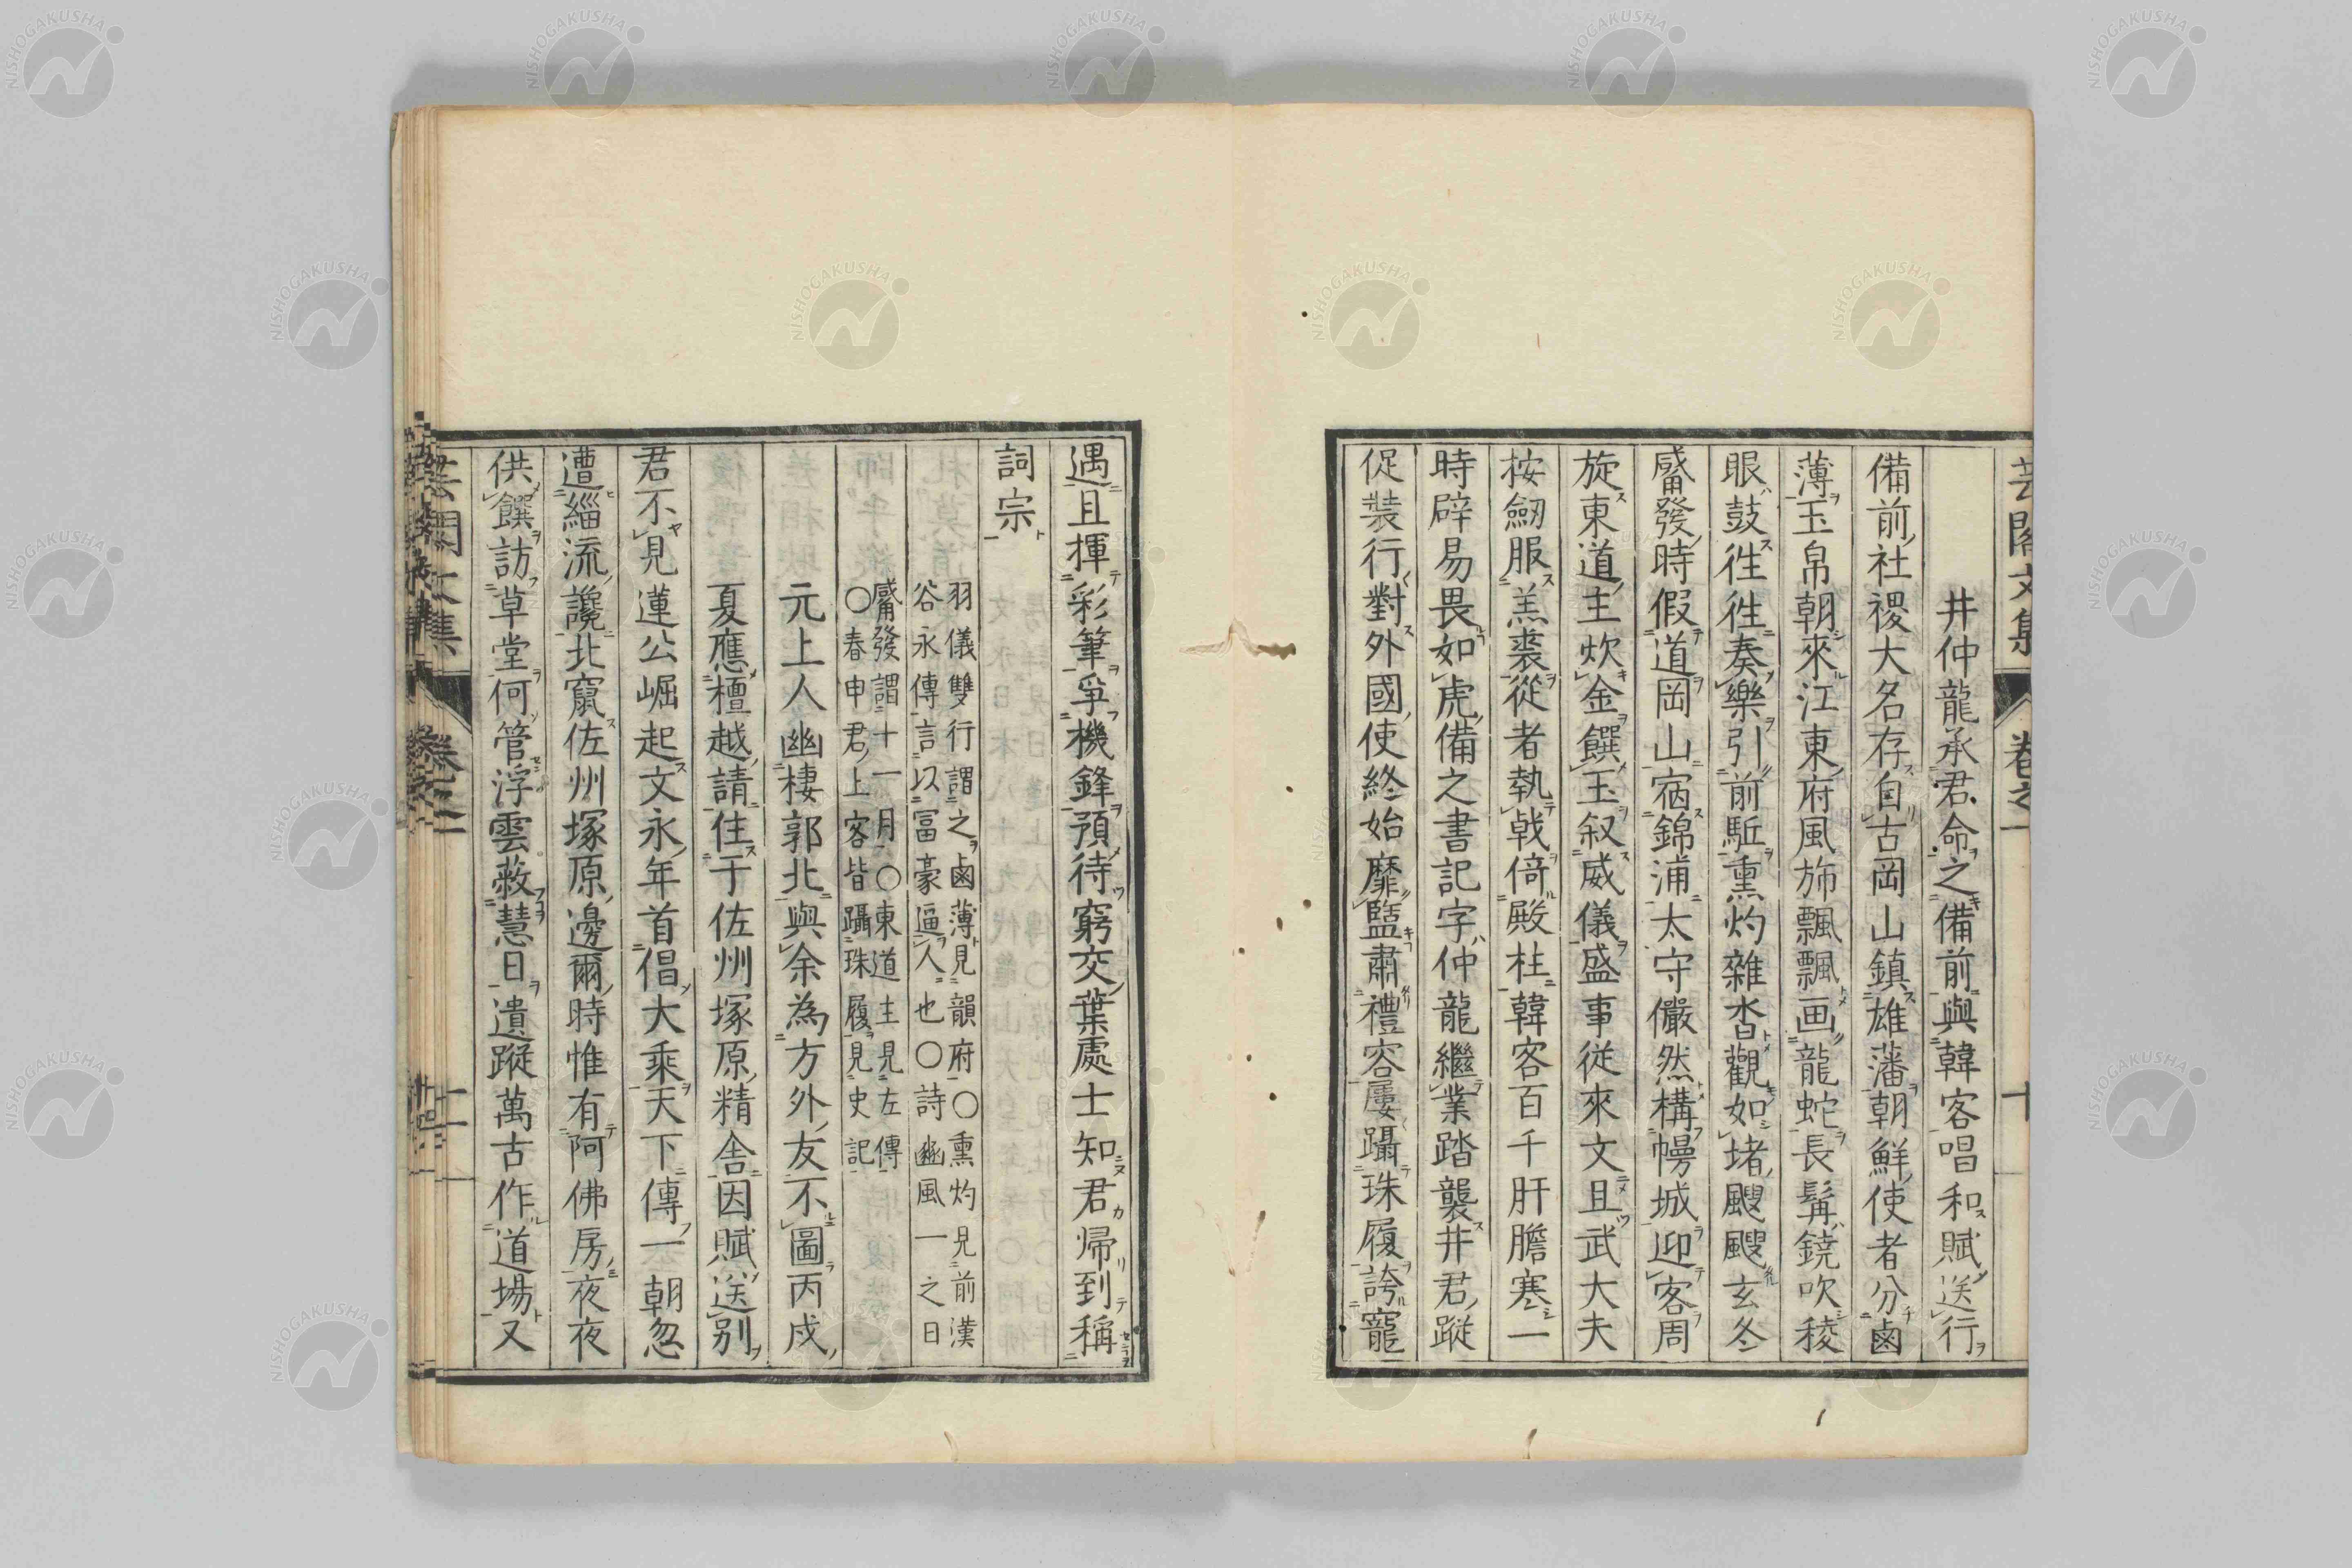 井仲龍承君命之備前與韓客唱和賦送行
備前社稷大名存自古岡山鎮雄藩朝鮮使者分鹵
薄玉帛朝來江東府風旆飄飄画龍蛇長髯鐃吹稜
眼鼓徃徃奏樂引前駈熏灼雜沓觀如堵颼颼玄冬
觱發時假道岡山宿錦浦太守儼然構幔城迎客周
旋東道主炊金饌玉叙威儀盛事從來文且武大夫
按劒服羔裘從者執戟倚殿柱韓客百千肝膽寒一
時辟易畏如虎備之書記字仲龍繼業踏襲井君蹤
促裝行對外國使終始靡盬肅禮容屢躡珠履誇寵
遇且揮彩筆爭機鋒預待窮交葉處士知君帰到稱
詞宗
羽儀雙行謂之鹵薄見韻府○熏灼見前漢
谷永傳言以冨豪逼人也○詩豳風一之日
觱發謂十一月○東道主見左傳
○春申君上客皆躡珠履見史記
元上人幽棲郭北與余為方外友不圖丙戌
夏應檀越請住于佐州塚原精舎因賦送別
君不見蓮公崛起文永年首倡大乘天下傳一朝忽
遭緇流讒北竄佐州塚原邊爾時惟有阿佛房夜夜
供饌訪草堂何管浮雲蔽慧日遺蹤萬古作道場又
芸閣文集
卷之一
十
NISHOGAKUSHA